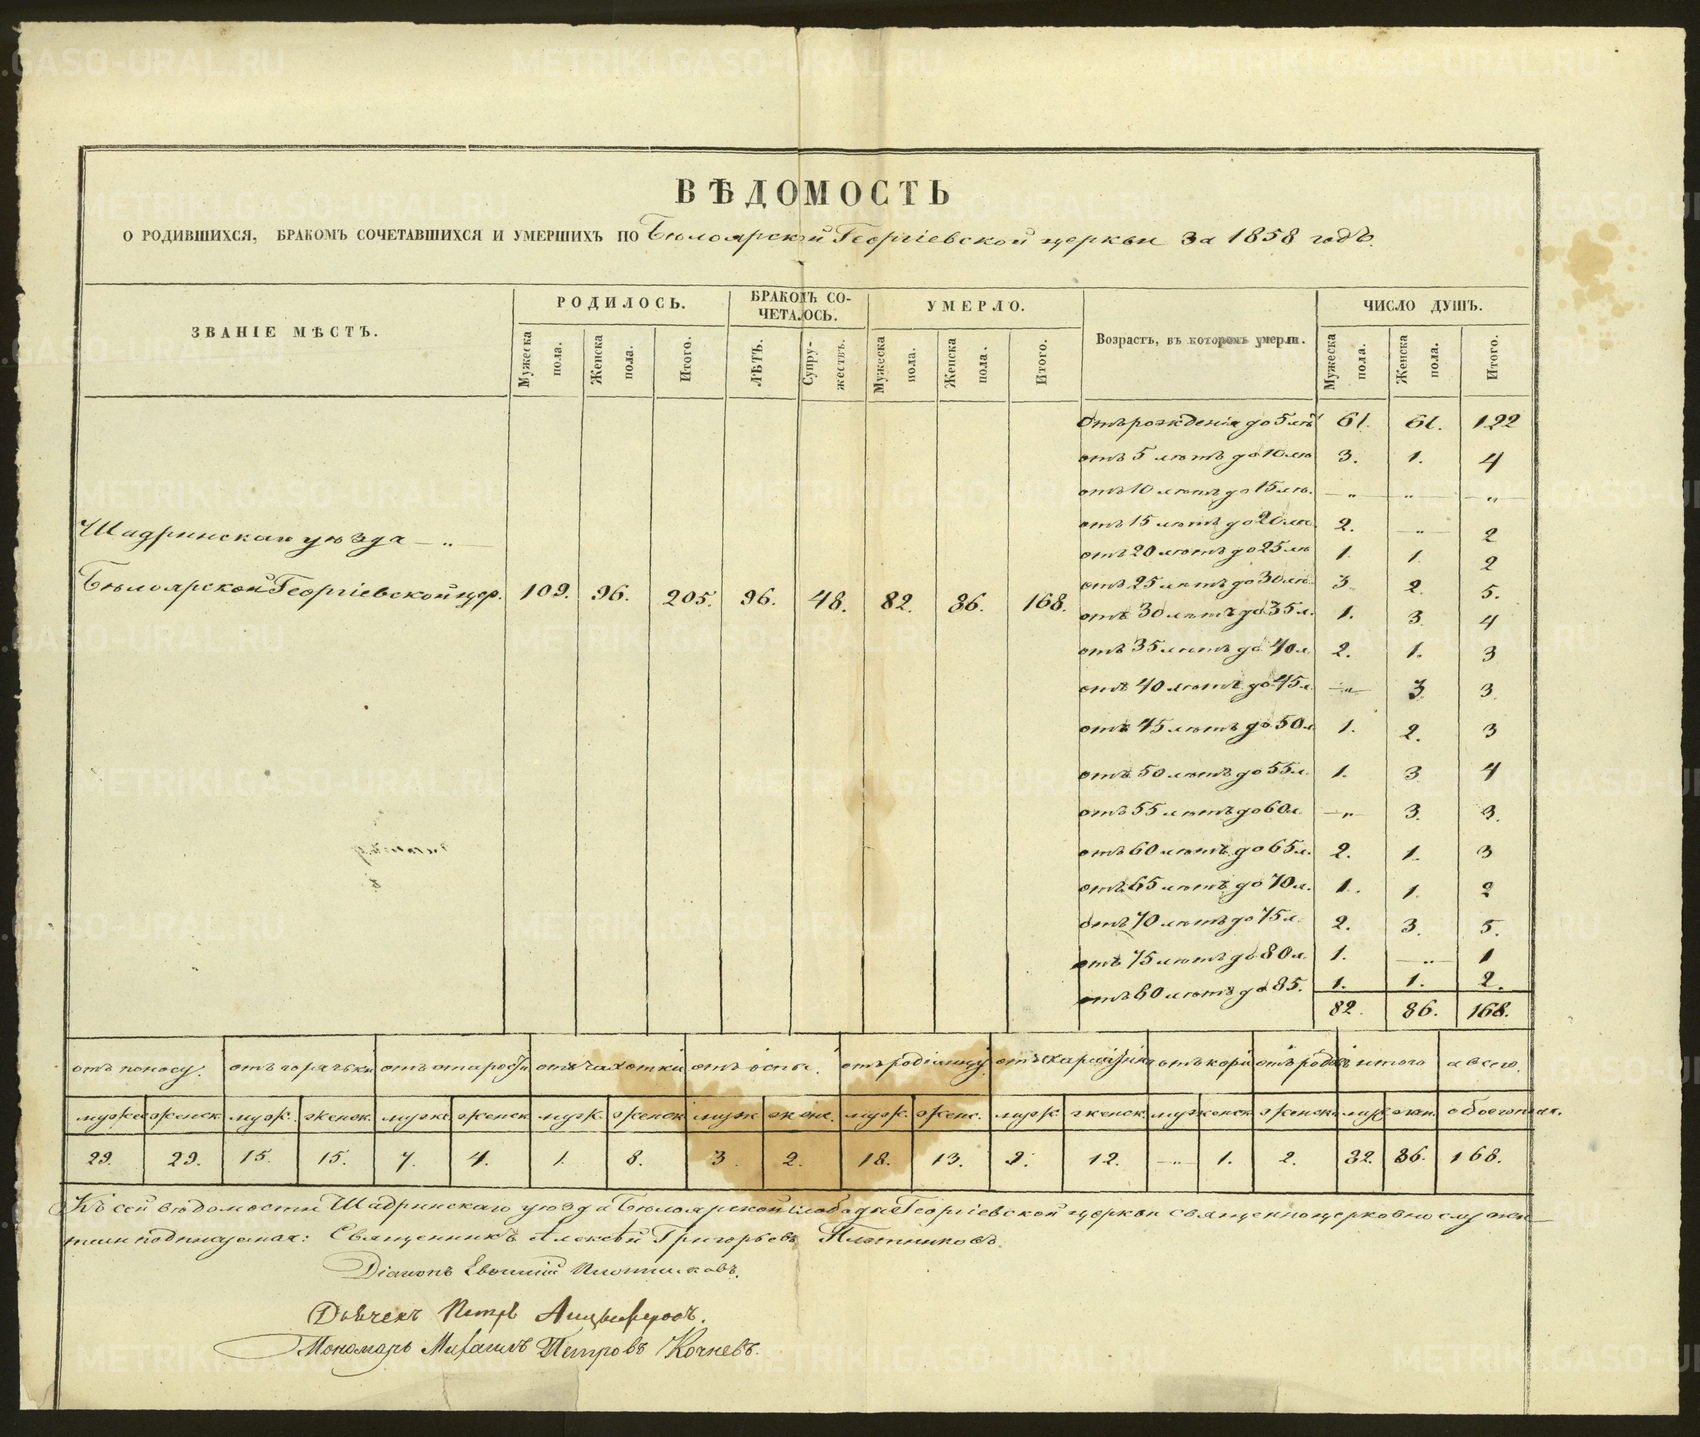 ВѢДОМОСТЬ
О РОДИВШИХСЯ, БРАКОМЪ СОЧЕТАВШИХСЯ И УМЕРШИХЪ ПО Бѣлоярской Георгіевской церкви за 1858 годъ.
ЗВАНІЕ МѢСТЪ.
РОДИЛОСЬ.
БРАКОМЪ СО-
ЧЕТАЛОСЬ.
УМЕРЛО.
Возрастъ, въ которомъ умерли.
ЧИСЛО ДУШЪ.
Мужеска пола.
Женска пола.
Итого.
ЛѢТЪ.
Супру-
жествъ.
Мужеска пола.
Женска пола.
Итого.
Мужеска пола.
Женска пола.
Итого.
отъ рожденія до 5 лѣтъ 61. 61. 122
отъ 5 лѣтъ до 10 лѣ 3. 1. 4
отъ 10 лѣтъ до 15 лѣ. — „ — „ — „
отъ 15 лѣтъ до 20 лѣ. 2. — „ — 2
отъ 20 лѣтъ до 25 лѣ 1. 1. 2
отъ 25 лѣтъ до 30 лѣ. 3 2. 5.
отъ 30 лѣтъ до 35 л. 1. 3 4
отъ 35 лѣтъ до 40 л 2. 1. 3
отъ 40 лѣтъ до 45 л. — „ — 3 3.
отъ 45 лѣтъ до 50 л 1. 2. 3
отъ 50 лѣтъ до 55 л. 1. 3 4
отъ 55 лѣтъ до 60 л — „ 3. 3.
отъ 60 лѣтъ до 65 л. 2. 1. 3
отъ 65 лѣтъ до 70 л. 1. 1. 2
отъ 70 лѣтъ до 75 л. 2. 3. 5.
отъ 75 лѣтъ до 80 л. 1. — „ 1
отъ 80 лѣтъ до 85. 1. 1. 2.
82. 86. 168.
Шадринскаго уѣзда — „ —
Бѣлоярской Георгіевской цер. 109. 96. 205. 96. 48. 82. 86. 168.
отъ поносу. отъ горячьки отъ старости отъ чахотки отъ оспы. отъ родимцу отъ скарлатины отъ кори отъ родовъ итого а всего.
муже женск муж. женск. муже женск муж. женск муж жене. муж. женс. муж женск. муж женск. женск муж жен. обоего пол.
29. 29. 15. 15. 7. 4. 1. 8. 3. 2. 18. 13. 9. 12. — „ — 1. 2. 82. 86. 168.
Къ сей вѣдомости Шадринскаго уѣзда Бѣлоярской слободы Георгіевской церкви священноцерковнослужи—
тели подписуемся: Священникъ Алексѣй Григорьевъ Плотниковъ.
Діаконъ Евфимій Плотниковъ.
Дьячекъ Петръ
Пономарь Михаилъ Петровъ Кочневъ.
METRIKI.GASO-URAL.RU